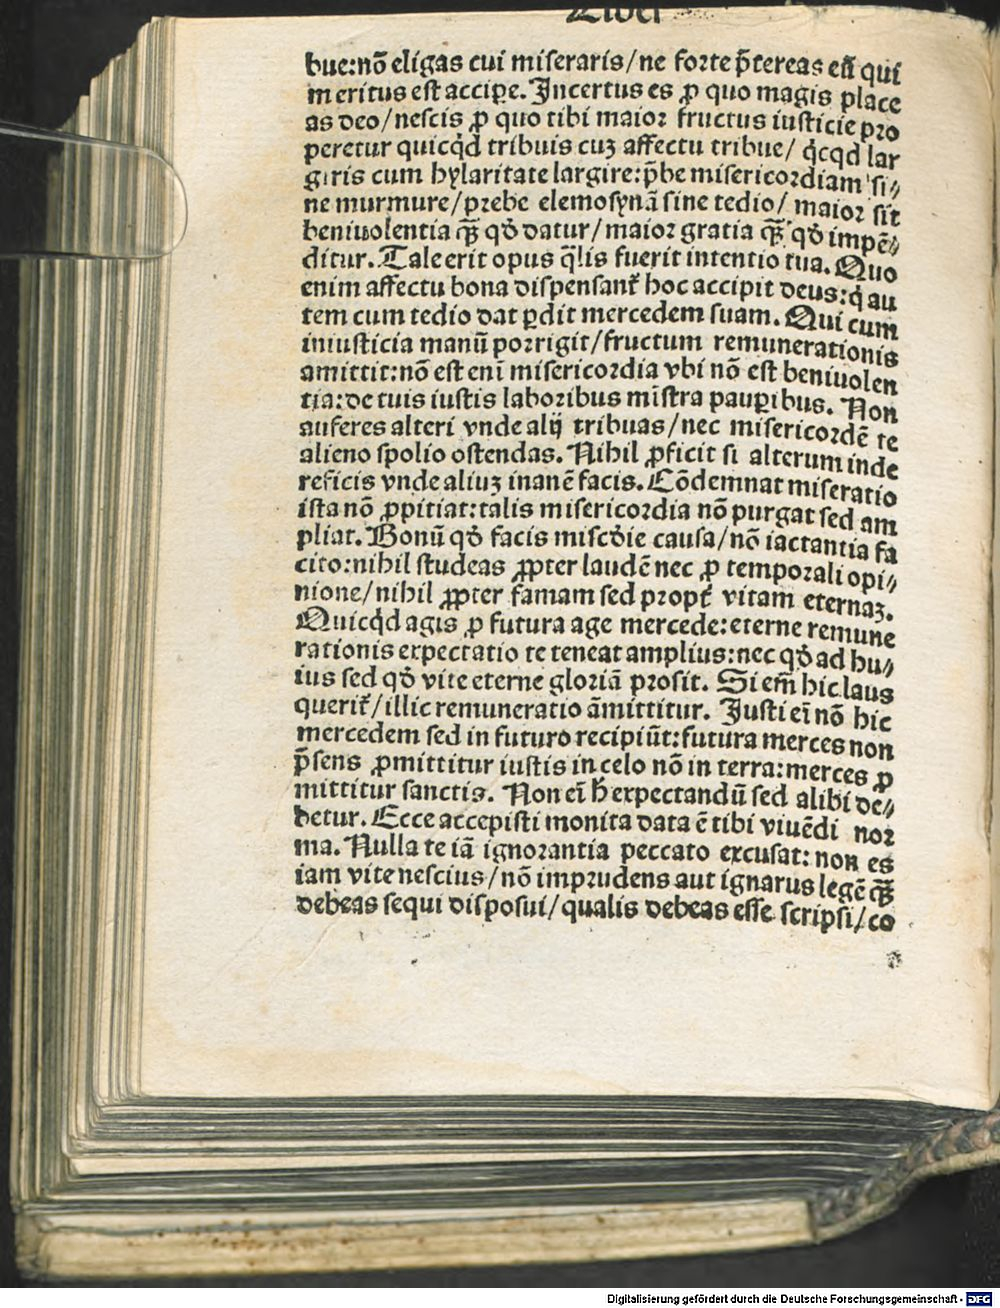 Liber
bue:nõ eligas cui miseraris/ne forte p̃tereas eũ qui
meritus est accipe̲. Incertus es ꝓ quo magis place
as deo/nescis ꝓ quo tibi maior fructus iusticie pro
peretur quicq̇d tribuis cuʒ affectu tribue/ q̇cqd lar
giris cum hylaritate largire:p̃be misericordiam si⸗
ne murmure/prebe elemosynã sine tedio/ maior sit
beniuolentia q̃ꝫ qď datur/maior gratia q̃ꝫ qď impẽ⸗
ditur. Tale erit opus q̃lis fuerit intentio tua. Quo
enim affectu bona dispensant̃ hoc accipit deus:q̇ au
tem cum tedio dat ꝑdit mercedem suam. Qui cum
iniusticia manũ porrigit/fructum remunerationis
amittit:nõ est eni̅ misericordia vbi nõ est beniuolen
tia:de tuis iustis laboribus mi̅stra pauꝑibus. Non
auferes alteri vnde alij tribuas/nec misericordẽ te
alieno spolio ostendas. Nihil ꝓficit si alterum inde
reficis vnde aliuʒ inanẽ facis. Cõdemnat miseratio
ista nõ ꝓpitiat:talis misericordia nõ purgat sed am
pliat. Bonũ qď facis misc̃die causa/nõ iactantia fa
cito:nihil studeas ꝓpter laudẽ nec ꝓ temporali opi⸗
nione/nihil ꝓpter famam sed propt̃ vitam eternaʒ.
Quicq̇d agis ꝓ futura age mercede:eterne remune
rationis expectatio te teneat amplius:nec qď ad hu⸗
ius sed qď vite eterne gloriã prosit. Si em̃ hic laus
querit̃/illic remuneratio ãmittitur. Justi ei̅ nõ hic
mercedem sed in futuro recipiũt:futura merces non
p̃sens ꝓmittitur iustis in celo nõ in terra:merces ꝓ
mittitur sanctis. Non ei̅ h̃ expectandũ sed alibi de⸗
betur. Ecce accepisti monita data ẽ tibi viuẽdi nor
ma. Nulla te iã ignorantia peccato excusat: non es
iam vite nescius/nõ imprudens aut ignarus legẽ q̃ꝫ
debeas sequi disposui/qualis debeas esse scripsi/co
Digitalisierung gefördert durch die Deutsche Forschungsgemeinschaft - DFG